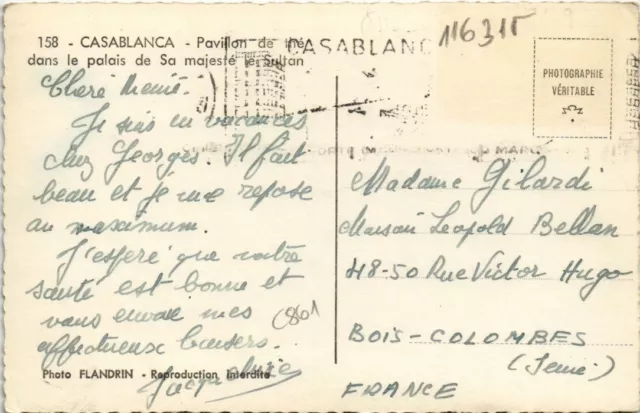 158 - CASABLANCA - Pavillon de thé
dans le palais de Sa majesté le Sultan
CASABLANC
116315
PHOTOGRAPHIE
VÉRITABLE
Cheré Mémé.
Je suis en vacances
chez Georges. Il fait
beau et je me repose
au maximum.
J'esperé que votre
santé est bonne et
vous envoie mes
affectueux baisers.
Jacqueline
C801
Madame Gilardi
Maison Leopold Bellan
48-50 Rue Victor Hugo
BOIS-COLOMBES
(Seine)
FRANCE
Photo FLANDRIN - Reproduction interdite